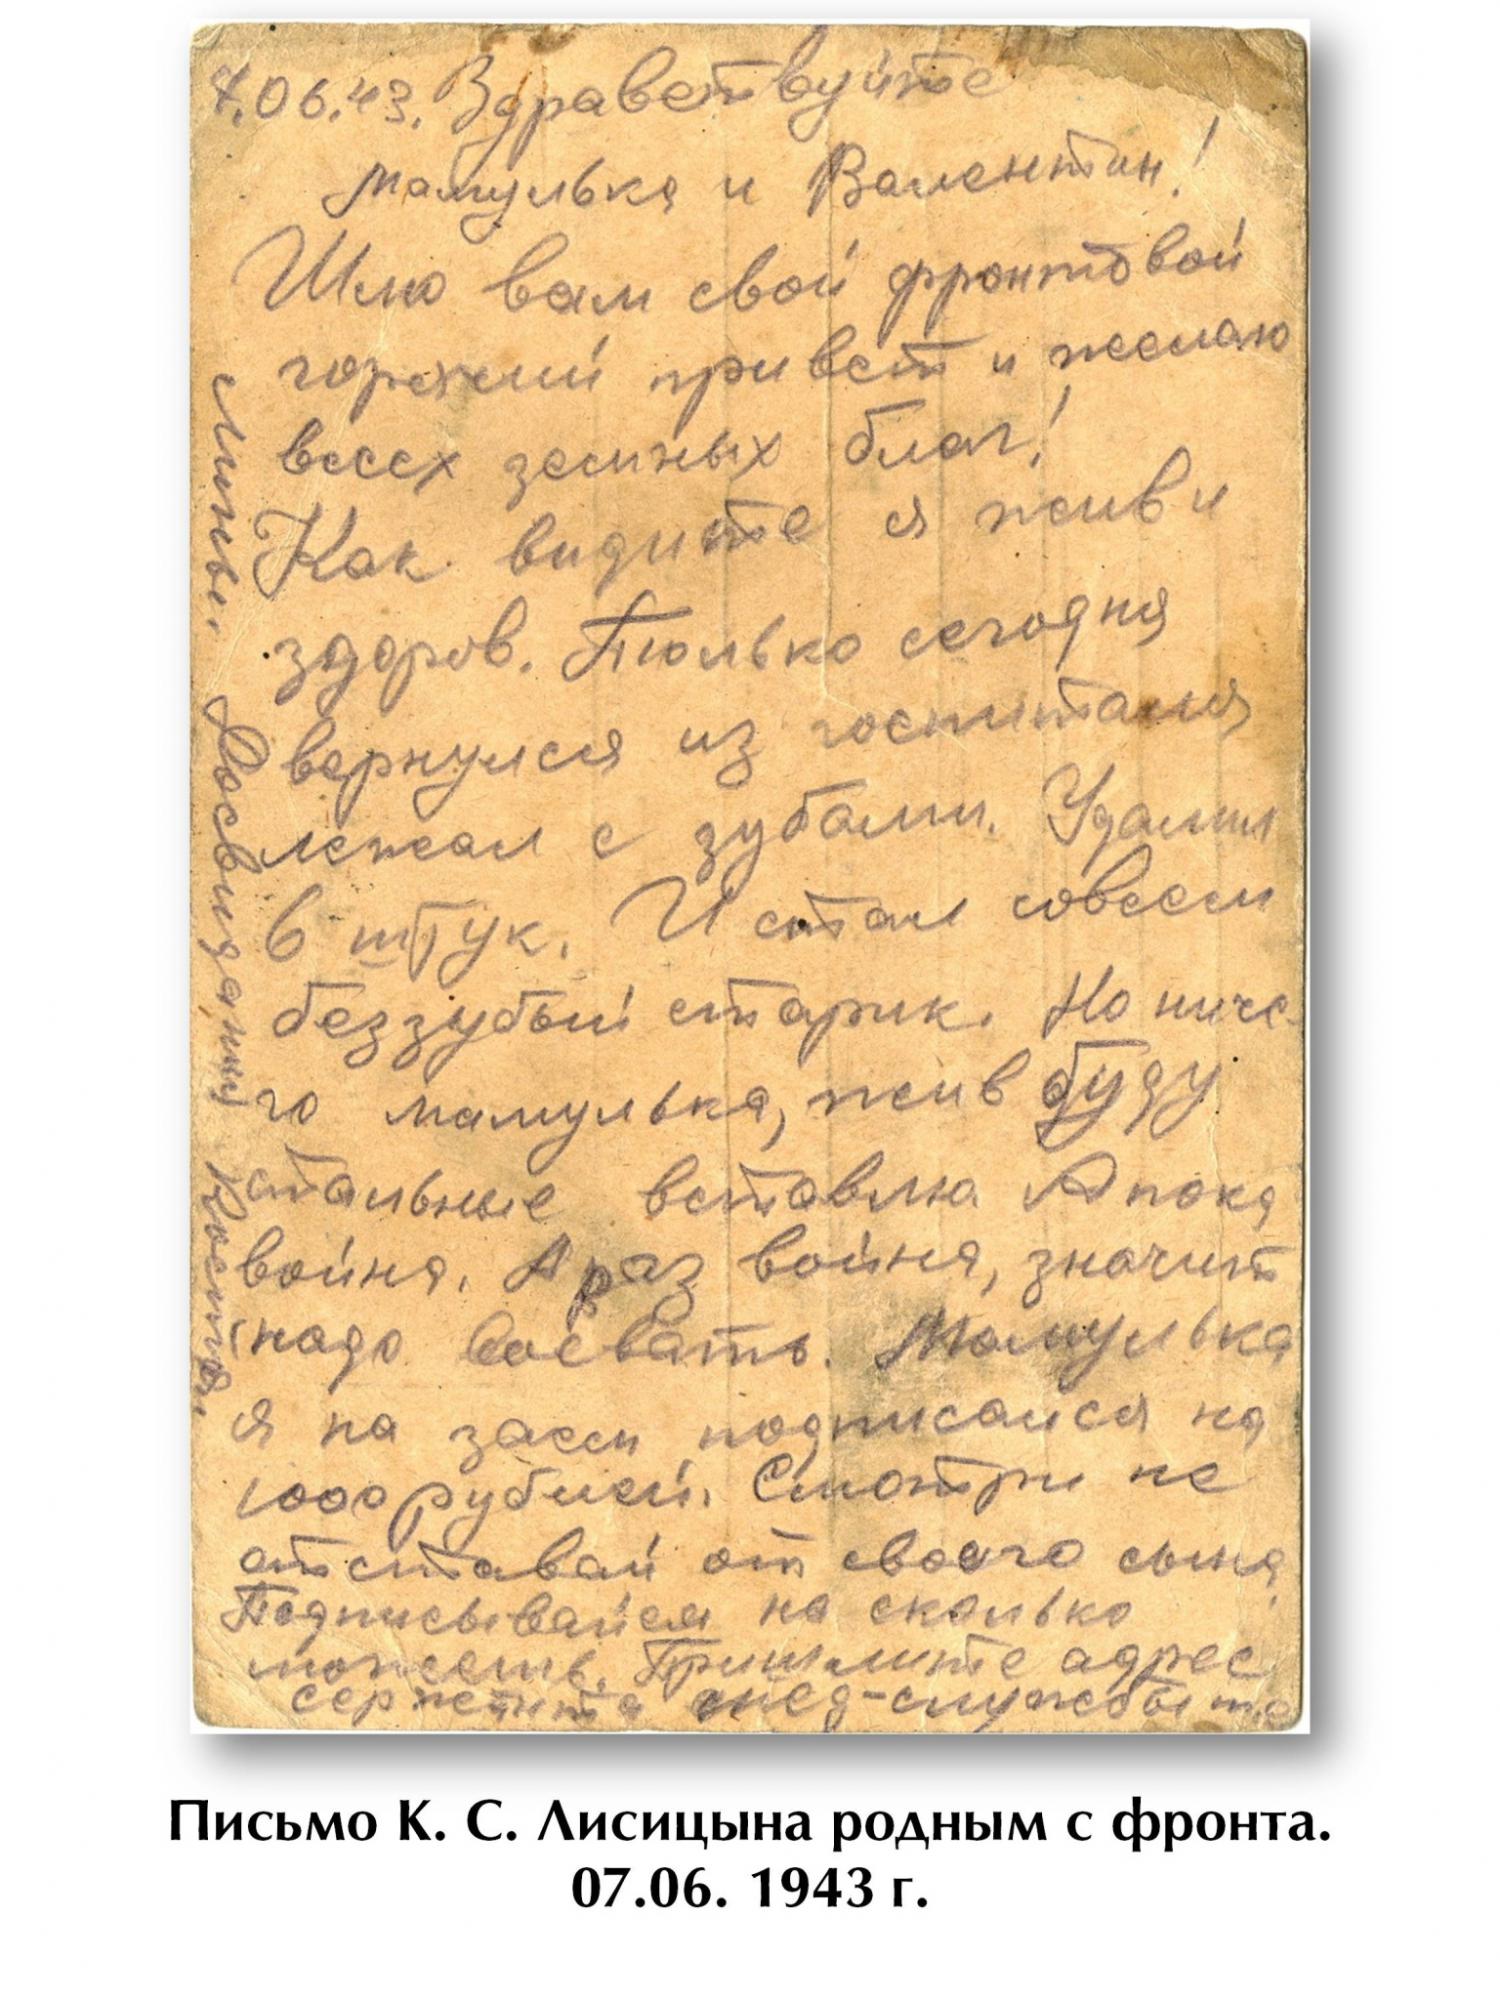 7.06.43. Здравствуйте
мамулька и Валентин!
Шлю вам свой фронтовой
горячий привет и желаю
всех земных благ!
Как видите я жив и
здоров. Только сегодня
вернулся из госпиталя
лежал с зубами. Удалил
6 штук. И стал совсем
беззубый старик. Но ниче-
го мамулька, жив буду
стальные вставлю А пока
война. А раз война, значит
надо воевать. Мамулька
я на заем подписался на
1000 рублей. Смотри не
отставай от своего сына.
Подписывайся на сколько
можешь. Пришлите адрес
сержанта мед-службы
Досвидания Костя.
Письмо К. С. Лисицына родным с фронта.
07.06. 1943 г.